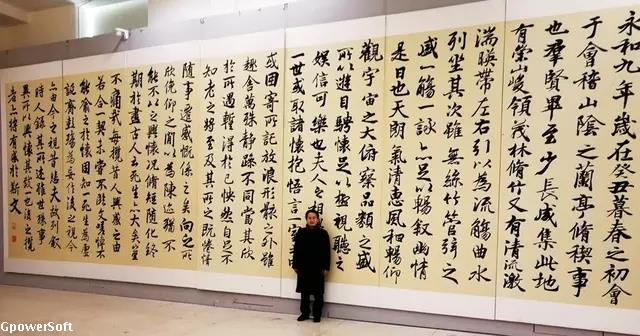 永和九年歲在癸丑暮春之初會
于會稽山陰之蘭亭脩稧事
也羣賢畢至少長咸集此地
有崇山峻領茂林脩竹又有清流激
湍暎帶左右引以為流觴曲水
列坐其次雖無絲竹管弦之
盛一觴一詠亦足以暢敘幽情
是日也天朗氣清惠風和暢仰
觀宇宙之大俯察品類之盛
所以遊目騁懷足以極視聽之
娛信可樂也夫人之相
一世或取諸懷抱悟言一室
或因寄所託放浪形骸之外雖
趣舍萬殊靜躁不同當其欣
於所遇暫得於己怏然自足不
知老之將至及其所之既惓情
隨事遷感慨係之矣向之所
欣俛仰之間以為陳迹猶不
能不以之興懷況脩短隨化終
期於盡古人云死生亦大矣豈
不痛哉每攬昔人興感之由
若合一契未嘗不臨文嗟悼不
能喻之於懷固知一死生為虛
誕齊彭殤為妄作後之視今
亦由今之視昔悲夫故列敘
時人錄其所述雖世殊事
異所以興懷其致一也後之攬
者亦將有感於斯文
GpowerSoft